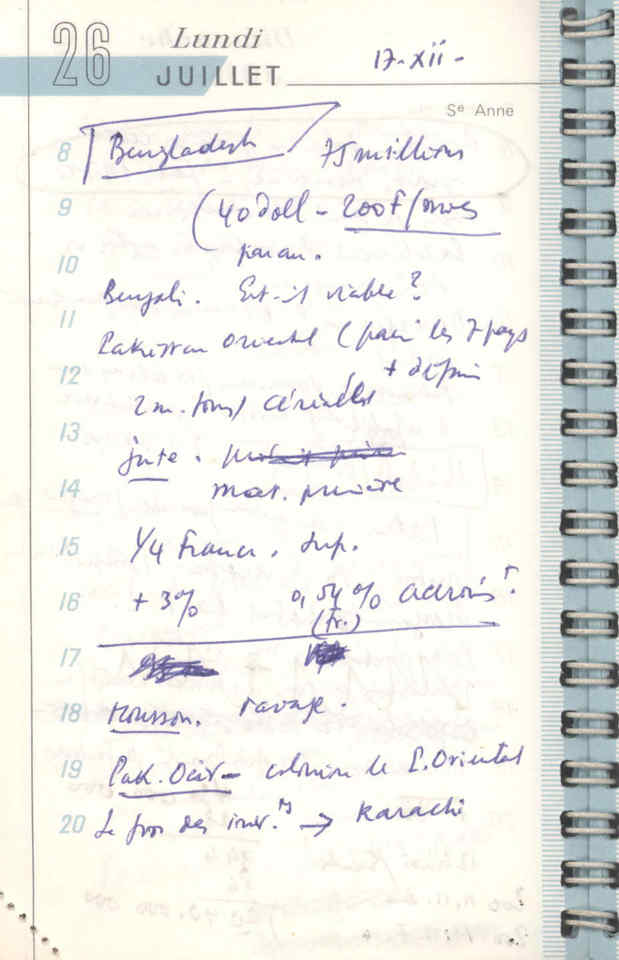 26 Lundi
JUILLET
17-xii-
Sᵉ Anne
8 Bengladesh 75 millions
9 (40 doll - 200F/mois
10 par an.
Bengali. Est-il viable?
11
Pakistan Oriental (parmi les 7 pays
12 + défin
2 m. tons/ Céréales
13
jute.
14 mat. première
15 1/4 France. sup.
16 + 3% 0,54% accrois^t.
(Fr.)
17
18 Mousson. ravage.
19 Pak. Occid - colonise le P. Oriental
20 Le gros des inv.^ts → Karachi